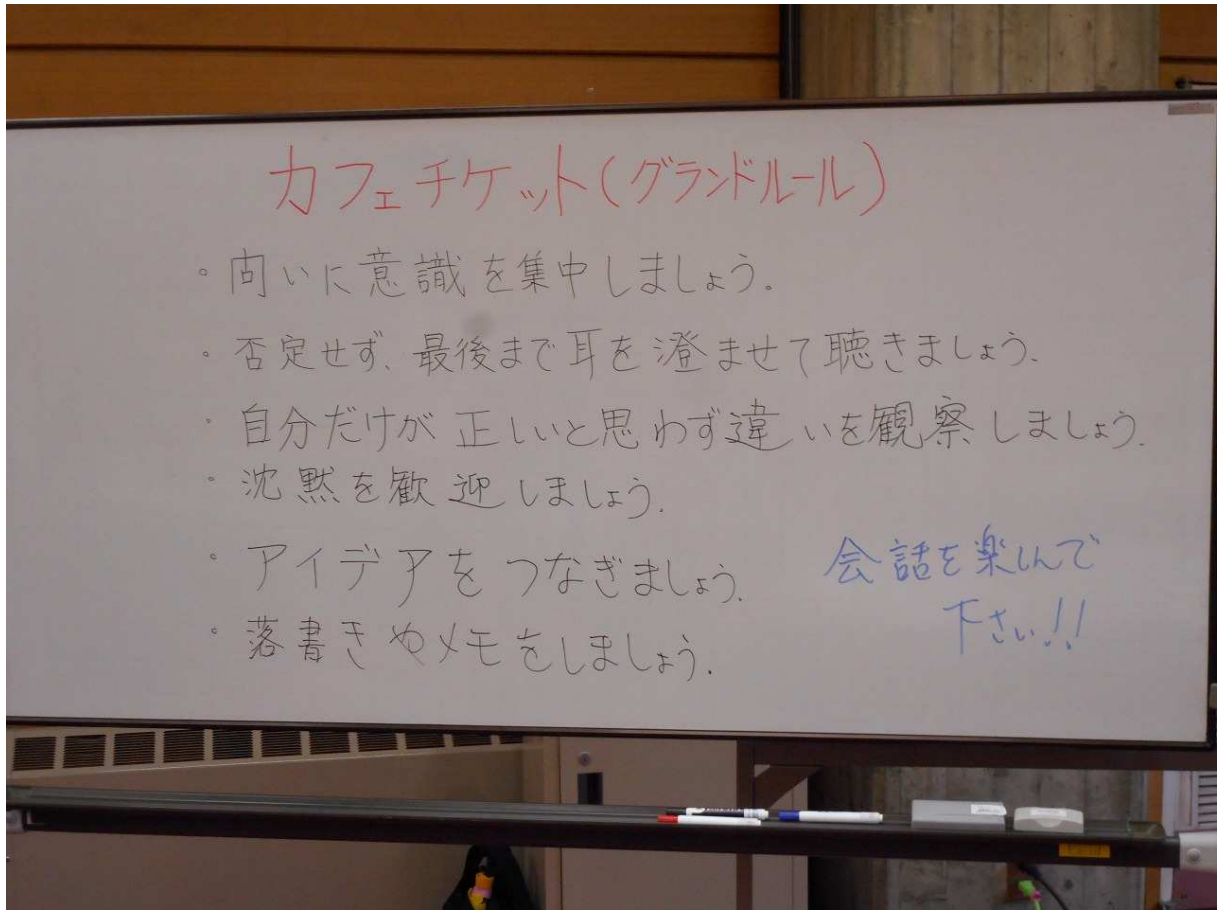 カフェチケット(グランドルール)
・問いに意識を集中しましょう。
・否定せず、最後まで耳を澄ませて聴きましょう。
・自分だけが正しいと思わず違いを観察しましょう。
・沈黙を歓迎しましょう。
・アイデアをつなぎましょう。
・落書きやメモをしましょう。
会話を楽しんで
下さい!!